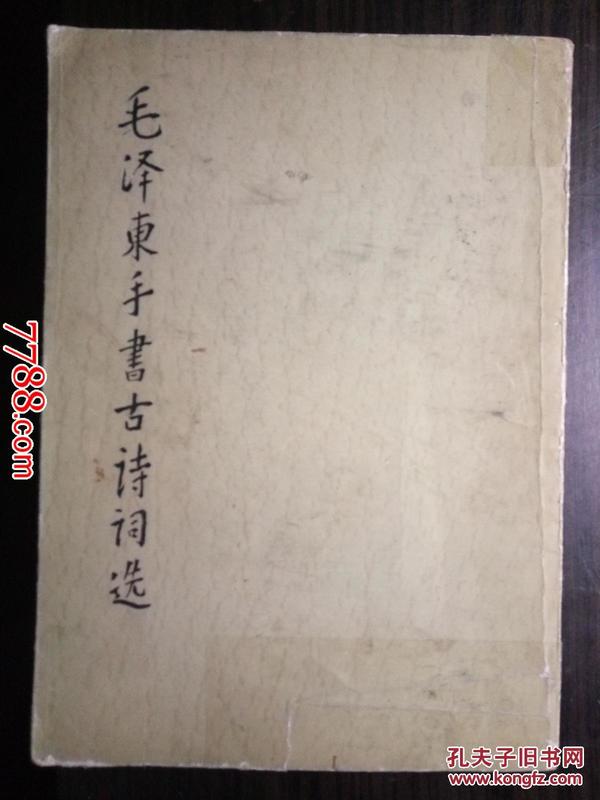 毛泽東手書古詩詞选
7788.com
孔夫子旧书网
www.kongfz.com